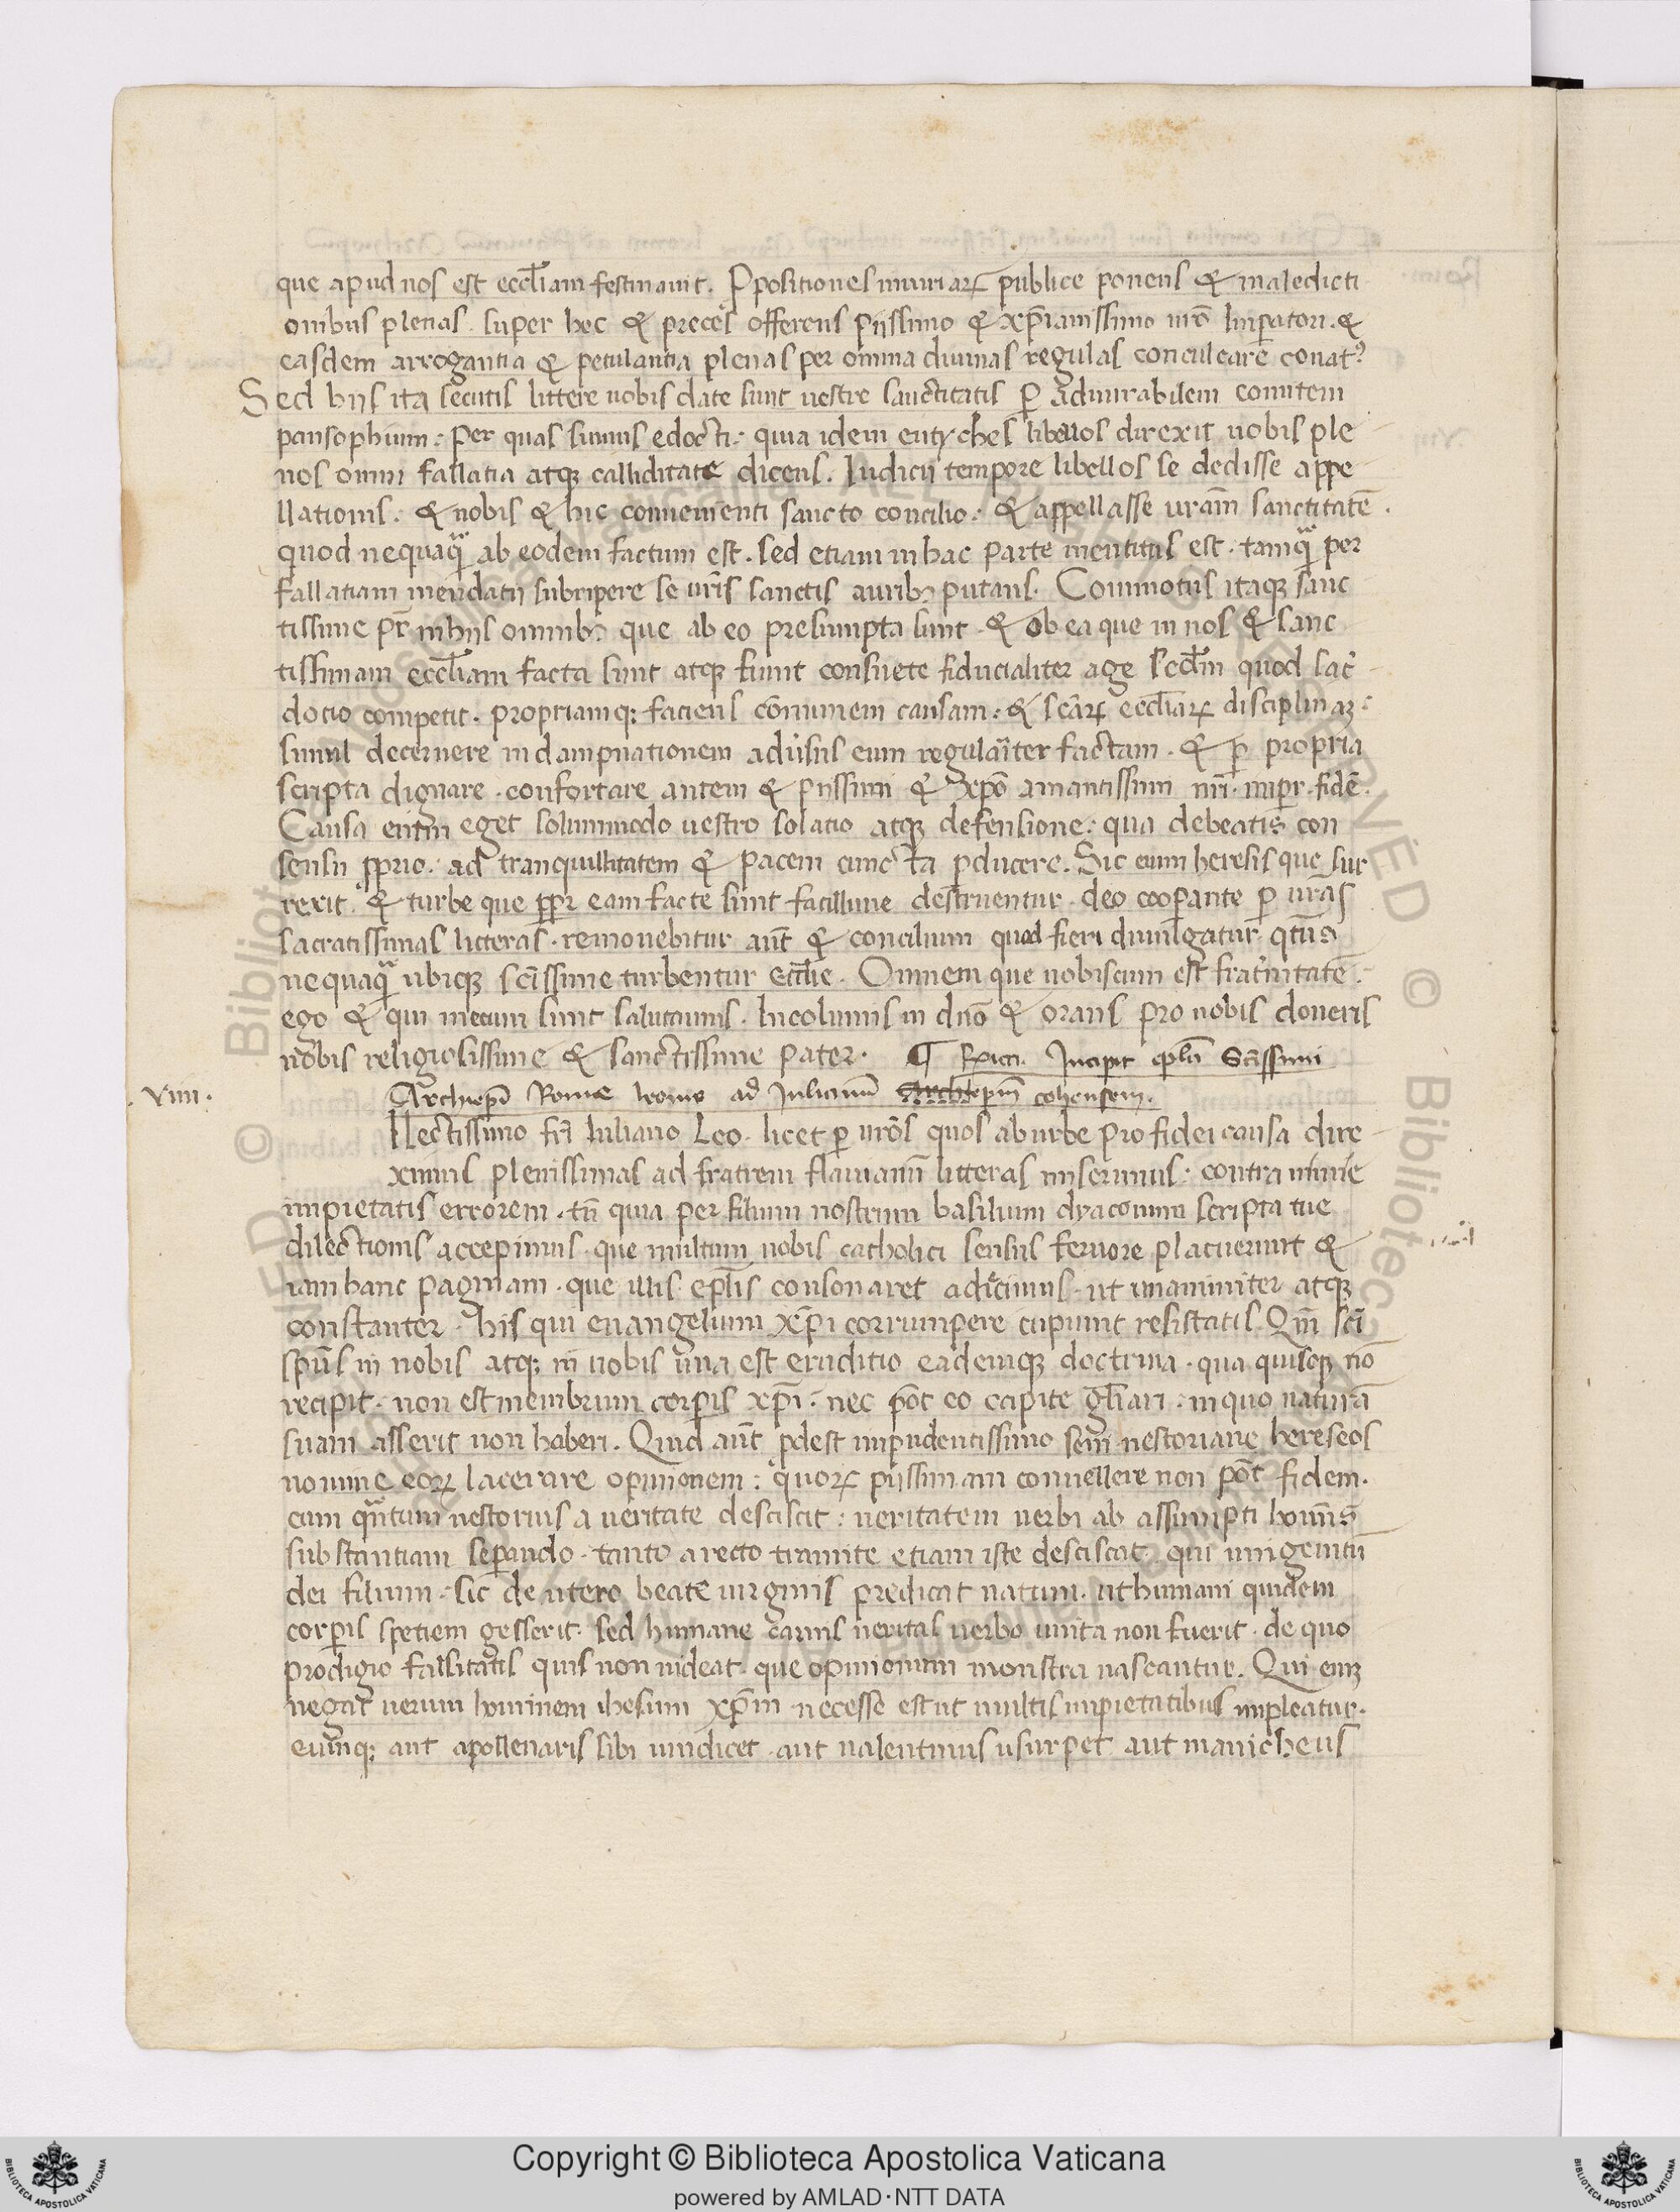 que apud nos est eccl̄iam festinauit. Ppositiones iniuriaꝝ publice ponens & maledicti
onibus plenas. super hec & preces offerens piissimo & xp̄ianissimo nr̄o Imperatori. &
easdem arrogantia & petulantia plenas per omnia diuinas regulas conculcare conat᷒
Sed hijs ita secutis littere nobis date sunt uestre sanctitatis ꝑ admirabilem comitem
pansophium: per quas sumus edocti: quia idem eutyches libellos direxit uobis ple
nos omni fallatia atqꝫ calliditate dicens. Iudicij tempore libellos se dedisse appe
llationis: & nobis & hic conuenienti sancto concilio: & appellasse ur̄am sanctitatē.
quod nequaqᷓ ab eodem factum est. sed etiam in hac parte mentitus est. tamqᷓ per
fallatiam mendatij subripere se ur̄is sanctis auribꝫ putans. Commotus itaqꝫ sanc
tissime pr̄ in hijs omnibꝫ que ab eo presumpta sunt. & ob ea que in nos & sanc
tissimam eccl̄iam facta sunt atqꝫ fiunt consuete fiducialiter age scd̄m quod sac̉
dotio competit. propriamqꝫ faciens cōmunem causam: & scāꝝ eccl̄iaꝝ disciplinaꝫ:
simul decernere in dampnationem adu̓sus eum regulariter factam. & ꝑ propria
scripta dignare. confortare autem & piissimi & xp̄o amantissimi nr̄i. impr̄. fidē.
Causa enim eget solummodo uestro solatio atqꝫ defensione: qua debeatis con
sensu ꝓprio. ad tranquillitatem & pacem cuncta ꝑducere. Sic enim heresis que sur
rexit. & turbe que ꝓpter eam facte sunt facillime destruentur. deo coopante ꝑ ur̄as
sacratissimas litteras. remouebitur aūt & concilium quod fieri diuulgatur. qt̄us
nequaqᷓ ubiqꝫ scīssime turbentur eccl̄ie. Omnem que uobiscum est frat̉nitatē:
ego & qui mecum sunt salutamus. Incolumis in dn̄o & orans pro nobis doneris
nobis religiosissime & sanctissime pater. ¶ Explicit. Incipit epl̄a Scīssimi
.viiii.
Archiepī Rome leonis ad Iulianum Archiepm̄ cohensem.
Dilectissimo fr̄i Iuliano Leo. licet ꝑ nr̄os quos ab urbe pro fidei causa dire
ximus plenissimas ad fratrem flauianū litteras miserimus: contra nimie
impietatis errorem. tn̄ quia per filium nostrum basilium dyaconum scripta tue
dilectionis accepimus. que multum nobis catholici sensus feruore placuerunt &
iam hanc paginam. que illis ep̄lis consonaret adicimus. ut unanimiter atqꝫ
constanter. his qui euangelium xp̄i corrumpere cupiunt resistatis. Qm̄ scī
spūs in nobis atqꝫ in uobis una est eruditio eademqꝫ doctrina. qua quisqꝫ nō
recipit. non est membrum corporis xp̄i. nec pōt eo capite gl̄iari. in quo naturā
suam asserit non haberi. Quid aūt ꝓdest impudentissimo seni nestoriane hereseos
nomine eoꝝ lacerare opinionem: quoꝝ piissimam conuellere non pōt fidem.
cum qᷓntum nestorius a ueritate desciscit: ueritatem uerbi ab assumpti homīs
substantiam seꝑando. tanto a recto tramite etiam iste desciscat. qui unigenitū
dei filium. sic de utero beate uirginis predicat natum. ut humani quidem
corporis spetiem gesserit. sed humane carnis ueritas uerbo unita non fuerit. de quo
prodigio falsitatis quis non uideat. que opinionum monstra nascantur. Qui eniꝫ
negat uerum hominem ihesum xp̄m necesse est ut multis impietatibus impleatur.
eumqꝫ aut apollenaris sibi uindicet. aut ualentinus usurpet aut manicheus
Copyright © Biblioteca Apostolica Vaticana
powered by AMLAD·NTT DATA